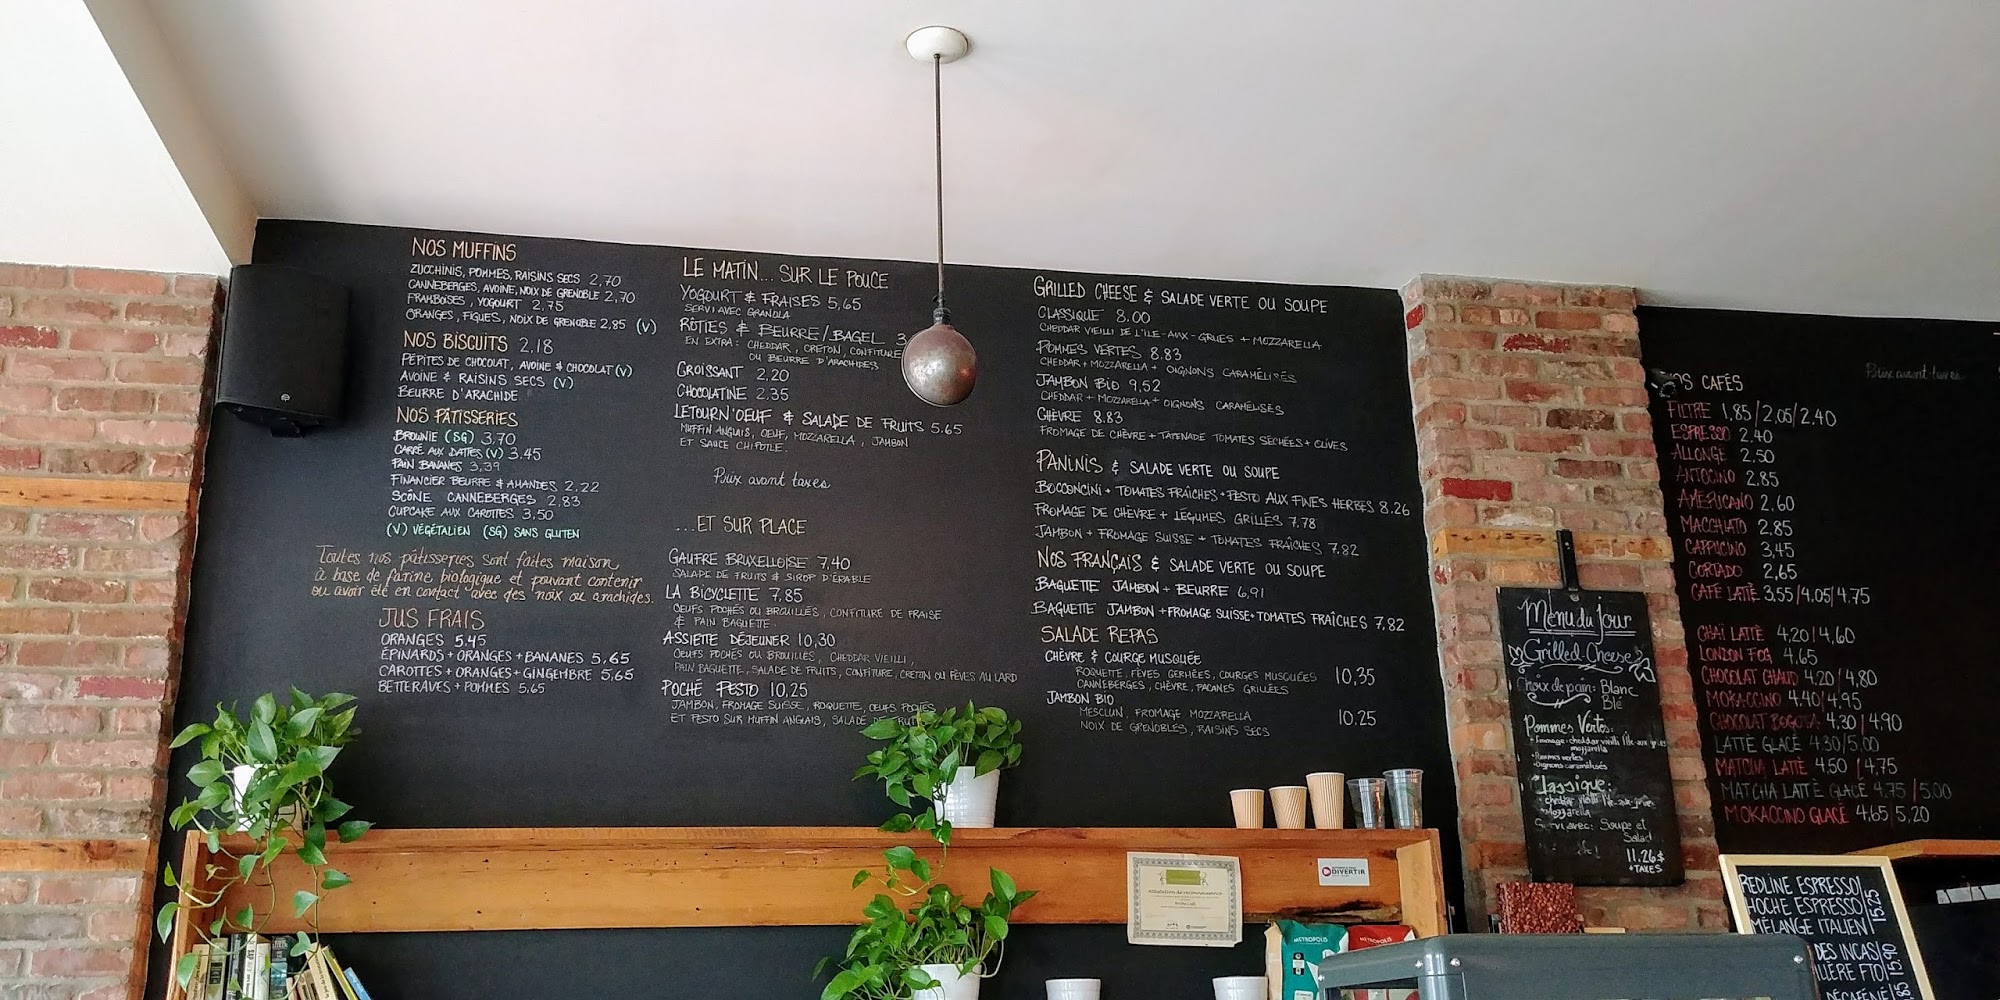 NOS MUFFINS
ZUCCHINIS, POMMES, RAISINS SECS 2,70
CANNEBERGES, AVOINE, NOIX DE GRENOBLE 2,70
FRAMBOISES, YOGOURT 2,75
ORANGES, FIGUES, NOIX DE GRENOBLE 2,85 (V)
NOS BISCUITS 2.18
PÉPITES DE CHOCOLAT, AVOINE & CHOCOLAT (V)
AVOINE & RAISINS SECS (V)
BEURRE D'ARACHIDE
NOS PÂTISSERIES
BROWNIE (SG) 3.70
CARRÉ AUX DATTES (V) 3.45
PAIN BANANES 3.39
FINANCIER BEURRE & AMANDES 2,22
SCÔNE CANNEBERGES 2,83
CUPCAKE AUX CAROTTES 3,50
(V) VÉGÉTALIEN (SG) SANS GLUTEN
Toutes nos pâtisseries sont faites maison
à base de farine biologique et pouvant contenir
ou avoir été en contact avec des noix ou arachides.
JUS FRAIS
ORANGES 5,45
ÉPINARDS + ORANGES + BANANES 5,65
CAROTTES + ORANGES + GINGEMBRE 5,65
BETTERAVES + POMMES 5.65
LE MATIN... SUR LE POUCE
YOGOURT & FRAISES 5,65
SERVI AVEC GRANOLA
RÔTIES & BEURRE/BAGEL 3
EN EXTRA: CHEDDAR, CRETON, CONFITURE
OU BEURRE D'ARACHIDES
CROISSANT 2.20
CHOCOLATINE 2,35
LETOURN'OEUF & SALADE DE FRUITS 5.65
MUFFIN ANGLAIS, OEUF, MOZZARELLA, JAMBON
ET SAUCE CHIPOTLE.
Prix avant taxes
...ET SUR PLACE
GAUFRE BRUXELLOISE 7,40
SALADE DE FRUITS & SIROP D'ÉRABLE
LA BICYCLETTE 7,85
OEUFS POCHÉS OU BROUILLÉS, CONFITURE DE FRAISE
& PAIN BAGUETTE.
ASSIETTE DÉJEUNER 10,30
OEUFS POCHÉS OU BROUILLÉS, CHEDDAR VIEILLI,
PAIN BAGUETTE, SALADE DE FRUITS, CONFITURE, CRETON OU FÈVES AU LARD
POCHÉ PESTO 10,25
JAMBON, FROMAGE SUISSE, ROQUETTE, OEUFS POCHÉS
ET PESTO SUR MUFFIN ANGLAIS, SALADE DE FRUITS
GRILLED CHEESE & SALADE VERTE OU SOUPE
CLASSIQUE 8.00
CHEDDAR VIEILLI DE L'ÎLE-AUX-GRUES + MOZZARELLA
POMMES VERTES 8.83
CHEDDAR + MOZZARELLA + OIGNONS CARAMÉLISÉS
JAMBON BIO 9,52
CHEDDAR + MOZZARELLA + OIGNONS CARAMÉLISÉS
CHÈVRE 8.83
FROMAGE DE CHÈVRE + TAPENADE TOMATES SÉCHÉES + OLIVES
PANINIS & SALADE VERTE OU SOUPE
BOCCONCINI + TOMATES FRAÎCHES + PESTO AUX FINES HERBES 8.26
FROMAGE DE CHÈVRE + LÉGUMES GRILLÉS 7.78
JAMBON + FROMAGE SUISSE + TOMATES FRAÎCHES 7.82
NOS FRANÇAIS & SALADE VERTE OU SOUPE
BAGUETTE JAMBON + BEURRE 6,91
BAGUETTE JAMBON + FROMAGE SUISSE + TOMATES FRAÎCHES 7,82
SALADE REPAS
CHÈVRE & COURGE MUSQUÉE
ROQUETTE, FÈVES GERMÉES, COURGES MUSQUÉES 10,35
CANNEBERGES, CHÈVRE, PACANES GRILLÉES
JAMBON BIO
MESCLUN, FROMAGE MOZZARELLA 10.25
NOIX DE GRENOBLES, RAISINS SECS
Menu du jour
Grilled-Cheese
Choix de pain: Blanc
Blé
Pommes Vertes:
Fromage: cheddar vieilli l'Île-aux-grues
mozzarella
Pommes vertes
Oignons caramélisés
Classique:
cheddar vieilli l'Île-aux-grues
Mozzarella
Servi avec: Soupe et
Salade
11.26$
+TAXES
Prix avant taxes
NOS CAFÉS
FILTRE 1,85/2,05/2,40
ESPRESSO 2.40
ALLONGÉ 2,50
ANTOCINO 2,85
AMERICANO 2,60
MACCHIATO 2,85
CAPPUCINO 3,45
CORTADO 2,65
CAFÉ LATTÈ 3,55/4,05/4,75
CHAÏ LATTÈ 4,20/4,60
LONDON FOG 4,65
CHOCOLAT CHAUD 4,20/4,80
MOKACCINO 4,40/4,95
CHOCOLAT BOGOTA 4,30/4,90
LATTÈ GLACÉ 4.30/5,00
MATCHA LATTÈ 4.50/4,75
MATCHA LATTÈ GLACÉ 4.75/5.00
MOKACCINO GLACÉ 4,65/5,20
REDLINE ESPRESSO
HOCHE ESPRESSO 15,25
MÉLANGE ITALIEN
DES INCAS
LLÈRE FTO 15,90
DÉCAFÉINÉ
Attestation de reconnaissance
DIVERTIR
METROPOLIS
METROPOLIS